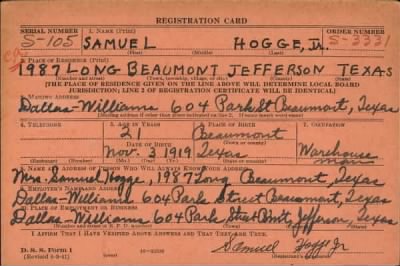 REGISTRATION CARD
SERIAL NUMBER 1. NAME (Print) ORDER NUMBER
S-105 SAMUEL HOGGE, Jr. S-3331
(First) (Middle) (Last)
2. PLACE OF RESIDENCE (Print)
1987 LONG BEAUMONT JEFFERSON TEXAS
(Number and street) (Town, township, village, or city) (County) (State)
[THE PLACE OF RESIDENCE GIVEN ON THE LINE ABOVE WILL DETERMINE LOCAL BOARD
JURISDICTION; LINE 2 OF REGISTRATION CERTIFICATE WILL BE IDENTICAL]
3. MAILING ADDRESS
Dallas-Williams 604 Park St Beaumont, Texas
[Mailing address if other than place indicated on line 2. If same insert word same]
4. TELEPHONE 5. AGE IN YEARS 6. PLACE OF BIRTH 7. OCCUPATION
21 Beaumont Warehouse
DATE OF BIRTH (Town or county)
Nov. 3 1919 Texas
(Exchange) (Number) (Mo.) (Day) (Yr.) (State or country)
8. NAME AND ADDRESS OF PERSON WHO WILL ALWAYS KNOW YOUR ADDRESS
Mrs. Samuel Hogge, 1987 Long Beaumont, Texas
9. EMPLOYER'S NAME AND ADDRESS
Dallas-Williams 604 Park Street Beaumont, Texas
10. PLACE OF EMPLOYMENT OR BUSINESS
Dallas-Williams 604 Park Street Bmt, Jefferson, Texas
(Number and street or R. F. D. number) (Town) (County) (State)
I AFFIRM THAT I HAVE VERIFIED ABOVE ANSWERS AND THAT THEY ARE TRUE.
D. S. S. Form 1 Samuel Hogge Jr
(Revised 6-9-41)